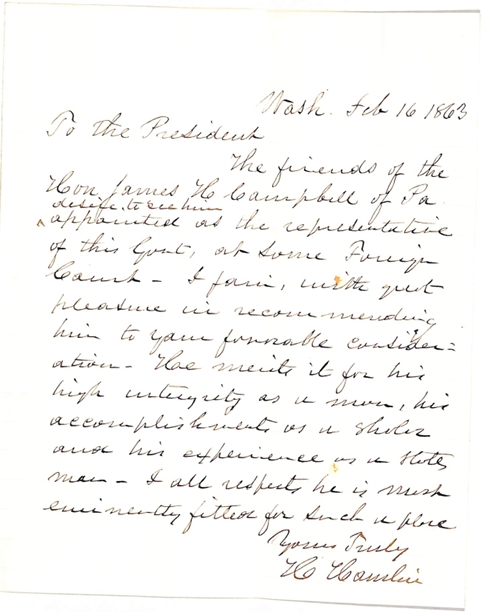 Wash. Feb 16 1863
To the President
The friends of the
Hon. James H Campbell of Pa.
desire to see him
^ appointed as the representative
of this Govt, at some Foreign
Court - I join, with great
pleasure in recommending
him to your favorable consider=
ation - He merits it for his
high integrity as a man, his
accomplishments as a sholar
and his experience as a states
man - I all respects he is most
eminently fitted for such a place
Yours Truly
H Hamlin